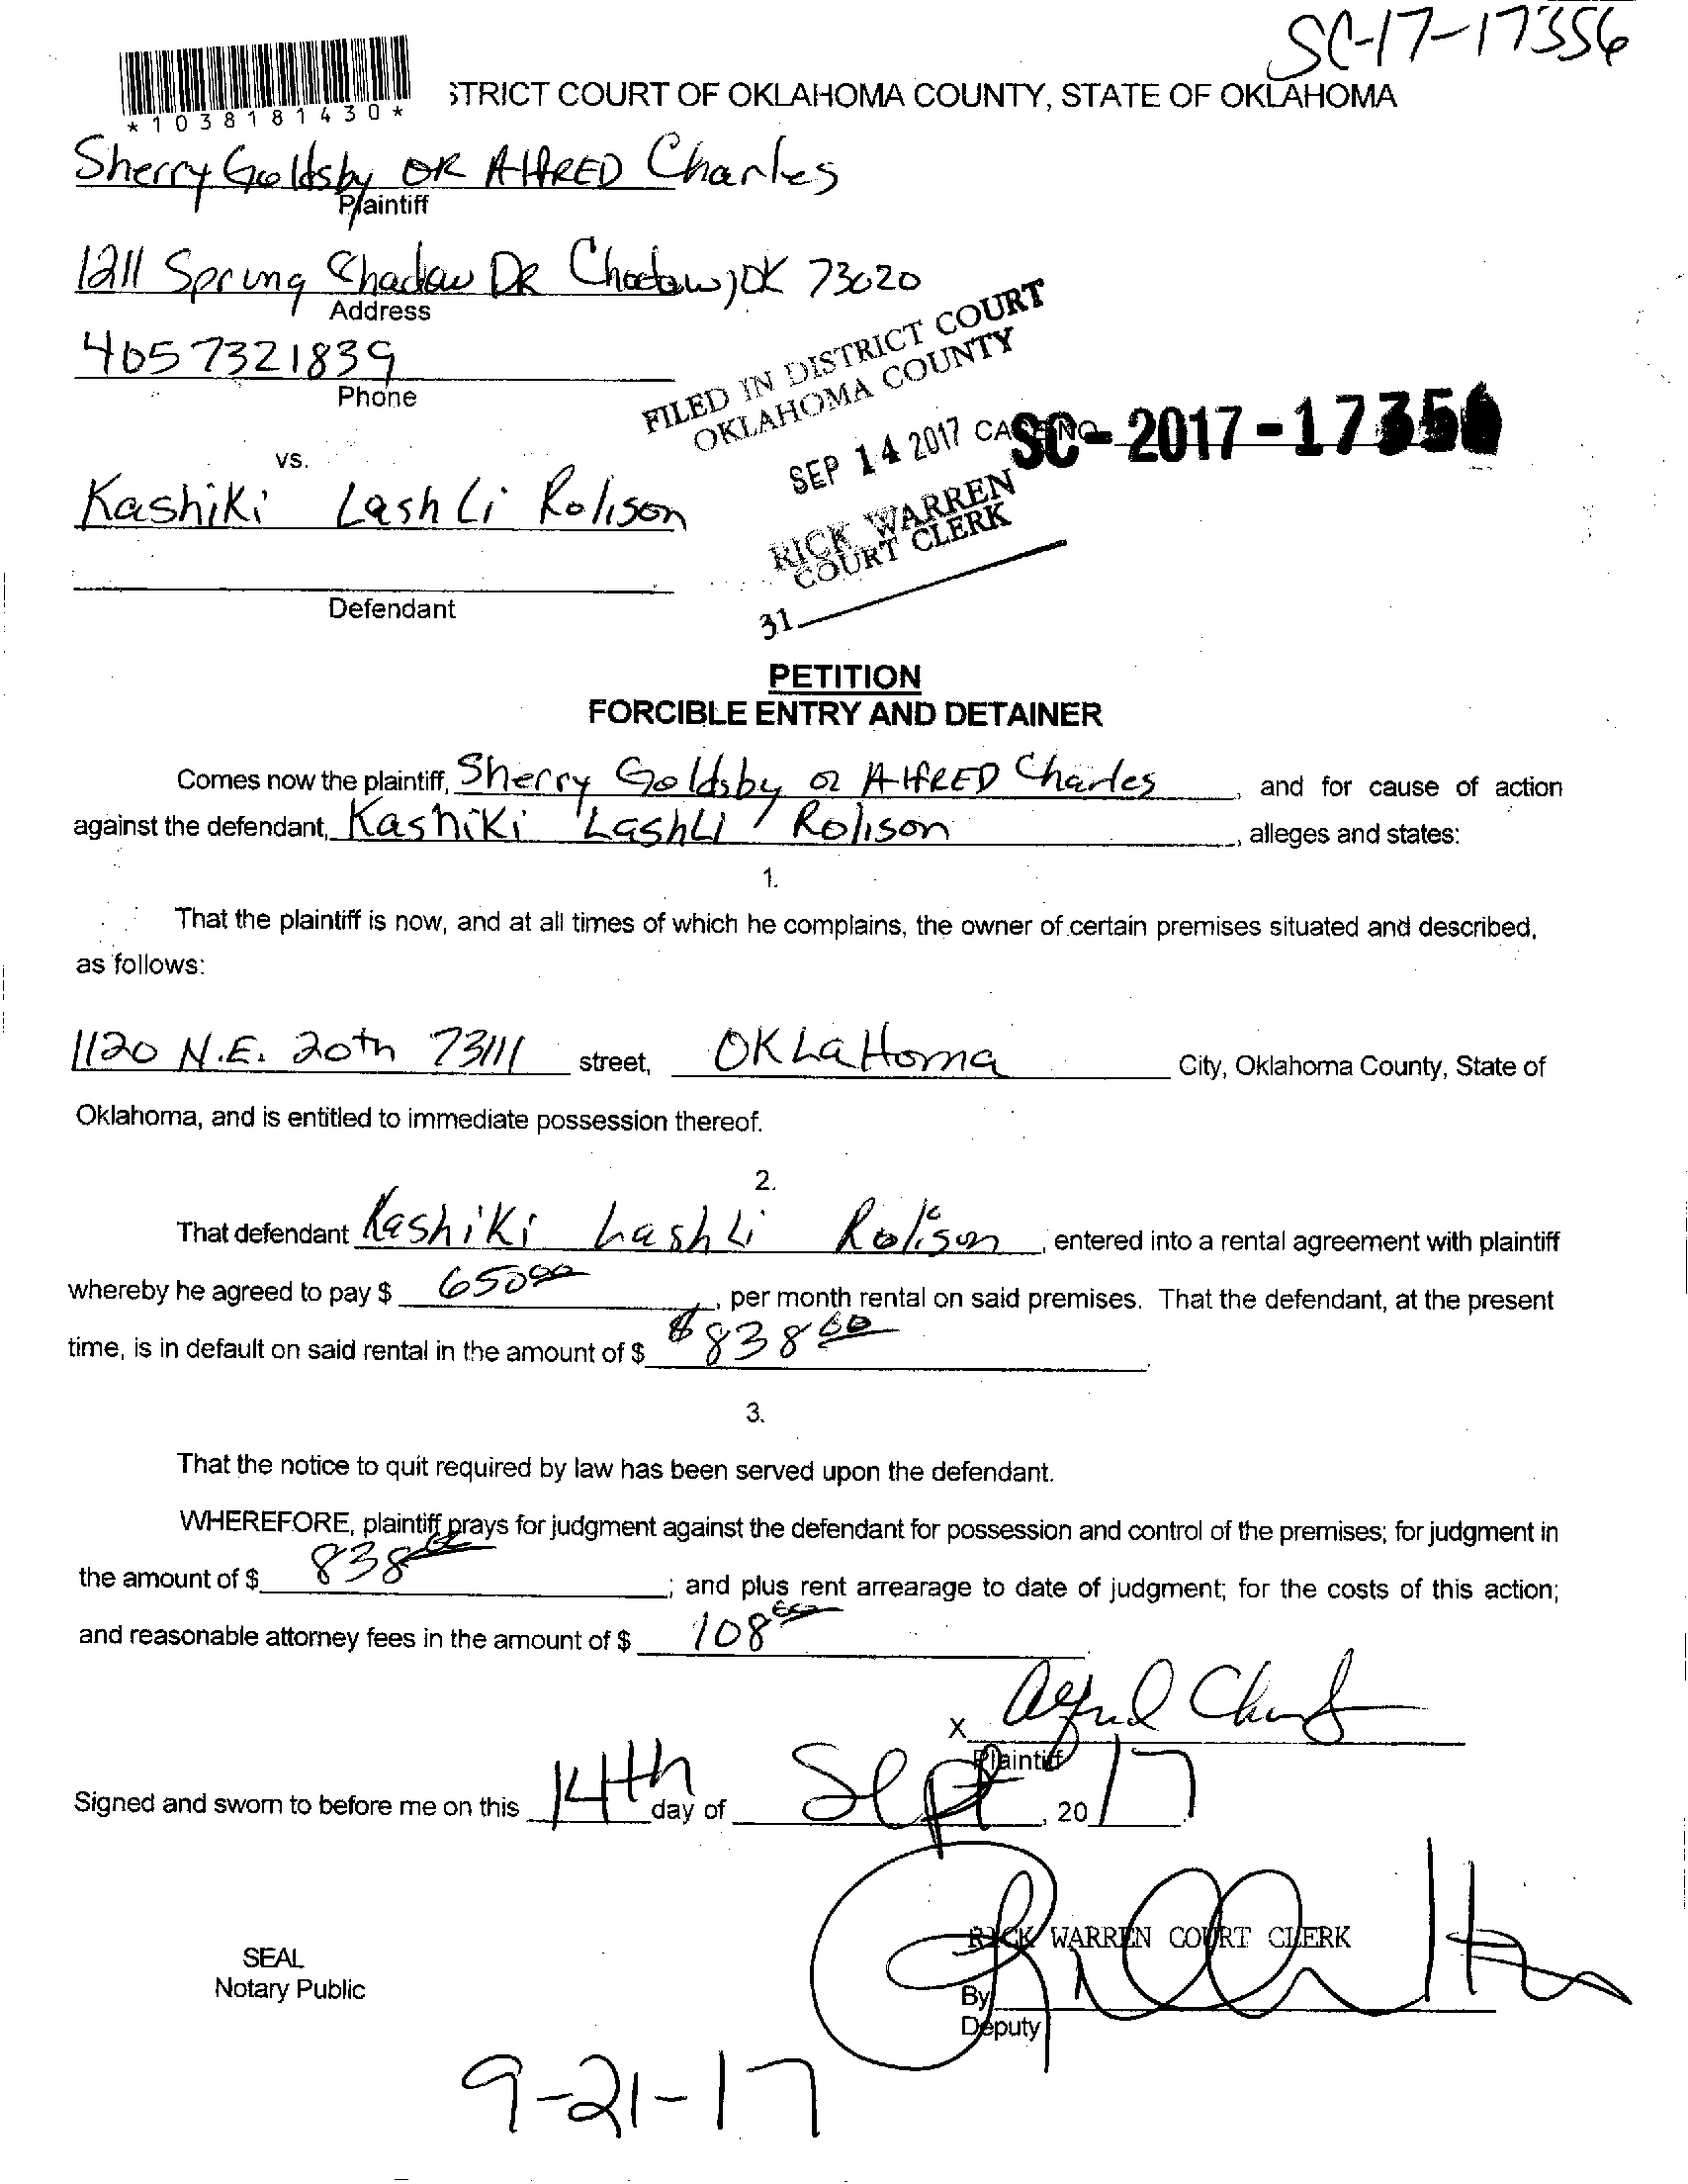 SC-17-17356
*1038181430*
STRICT COURT OF OKLAHOMA COUNTY, STATE OF OKLAHOMA
Sherry Goldsby OR AlfRED Charles
Plaintiff
1211 Spring Shadow DR Choctaw, OK 73020
Address
4057321839
Phone
FILED IN DISTRICT COURT
OKLAHOMA COUNTY
SEP 14 2017
CASE NO. SC-2017-17356
RICK WARREN
COURT CLERK
31
vs.
Kashiki Lashli Rolison
Defendant
PETITION
FORCIBLE ENTRY AND DETAINER
Comes now the plaintiff, Sherry Goldsby OR AlfRED Charles, and for cause of action
against the defendant, Kashiki Lashli Rolison, alleges and states:
1.
That the plaintiff is now, and at all times of which he complains, the owner of certain premises situated and described,
as follows:
1120 N.E. 20th 73111 street, OKLaHoma City, Oklahoma County, State of
Oklahoma, and is entitled to immediate possession thereof.
2.
That defendant Kashiki Lashli Rolison, entered into a rental agreement with plaintiff
whereby he agreed to pay $ 650.00, per month rental on said premises. That the defendant, at the present
time, is in default on said rental in the amount of $ $838.00.
3.
That the notice to quit required by law has been served upon the defendant.
WHEREFORE, plaintiff prays for judgment against the defendant for possession and control of the premises; for judgment in
the amount of $ 838.00; and plus rent arrearage to date of judgment; for the costs of this action;
and reasonable attorney fees in the amount of $ 108.00
X Alfred Charles
Plaintiff
Signed and sworn to before me on this 14th day of Sept, 20 17.
RICK WARREN COURT CLERK
SEAL
Notary Public
By
Deputy
9-21-17